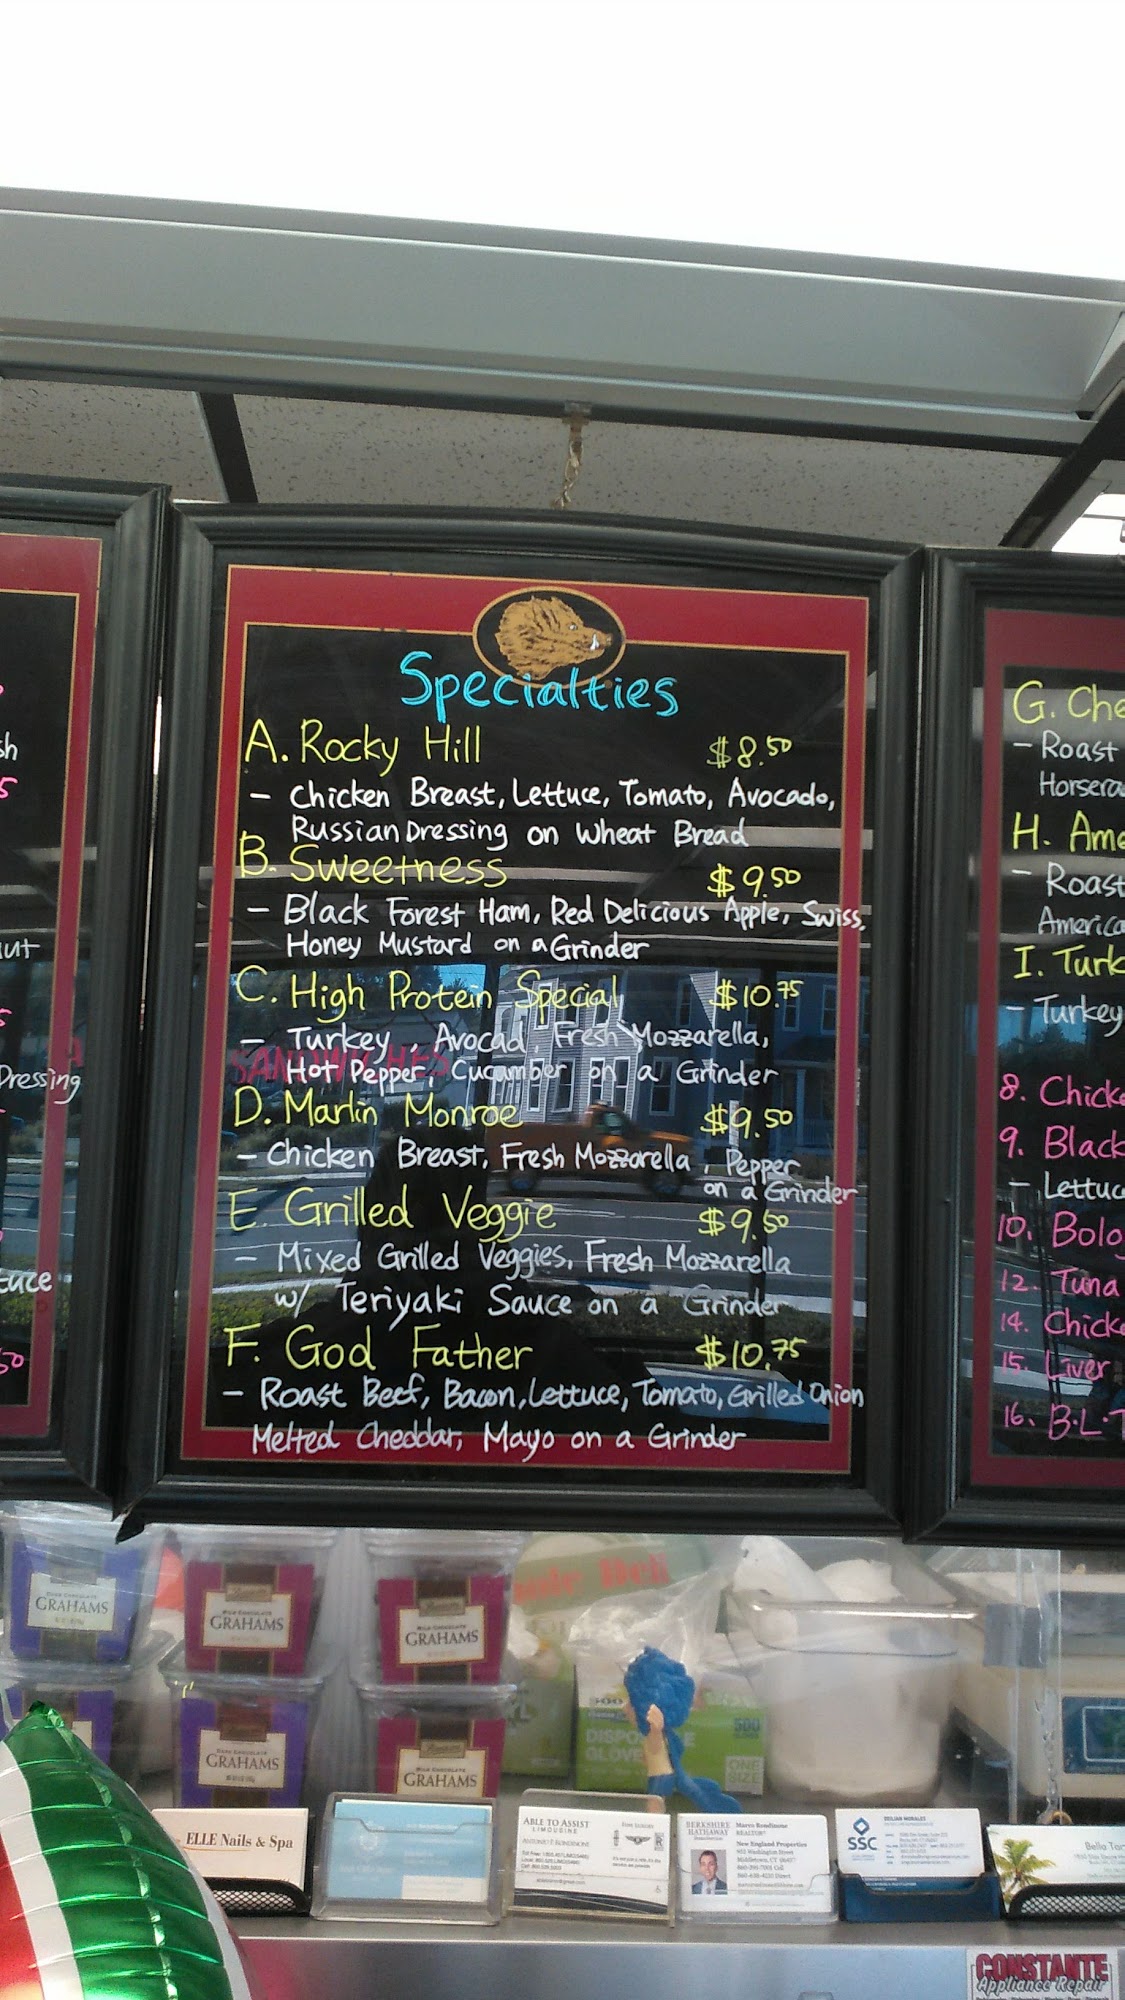 Specialties
A. Rocky Hill $8.50
- Chicken Breast, Lettuce, Tomato, Avocado,
Russian Dressing on Wheat Bread
B. Sweetness $9.50
- Black Forest Ham, Red Delicious Apple, Swiss,
Honey Mustard on a Grinder
C. High Protein Special $10.75
- Turkey, Avocad Fresh Mozzarella,
Hot Pepper, Cucumber on a Grinder
D. Marlin Monroe $9.50
- Chicken Breast, Fresh Mozzarella, Pepper
on a Grinder
E. Grilled Veggie $9.50
- Mixed Grilled Veggies, Fresh Mozzarella
w/ Teriyaki Sauce on a Grinder
F. God Father $10.75
- Roast Beef, Bacon, Lettuce, Tomato, Grilled Onion
Melted Cheddar, Mayo on a Grinder
SANDWICHES
Dressing
G. Che
- Roast
Horsera
H. Ame
- Roast
America
I. Turk
- Turkey
8. Chicke
9. Black
- Lettuc
10. Bolog
12. Tuna
14. Chicke
15. Liver
16. B.L.T
DARK CHOCOLATE
GRAHAMS
MILK CHOCOLATE
GRAHAMS
MILK CHOCOLATE
GRAHAMS
DARK CHOCOLATE
GRAHAMS
GRAHAMS
Deli
500
ONE
SIZE
ELLE Nails & Spa
ABLE TO ASSIST
LIMOUSINE
BERKSHIRE
HATHAWAY
Marco Rondinone
REALTOR
New England Properties
Middletown, CT 06457
SSC
Bella Tan
CONSTANTE
Appliance Repair